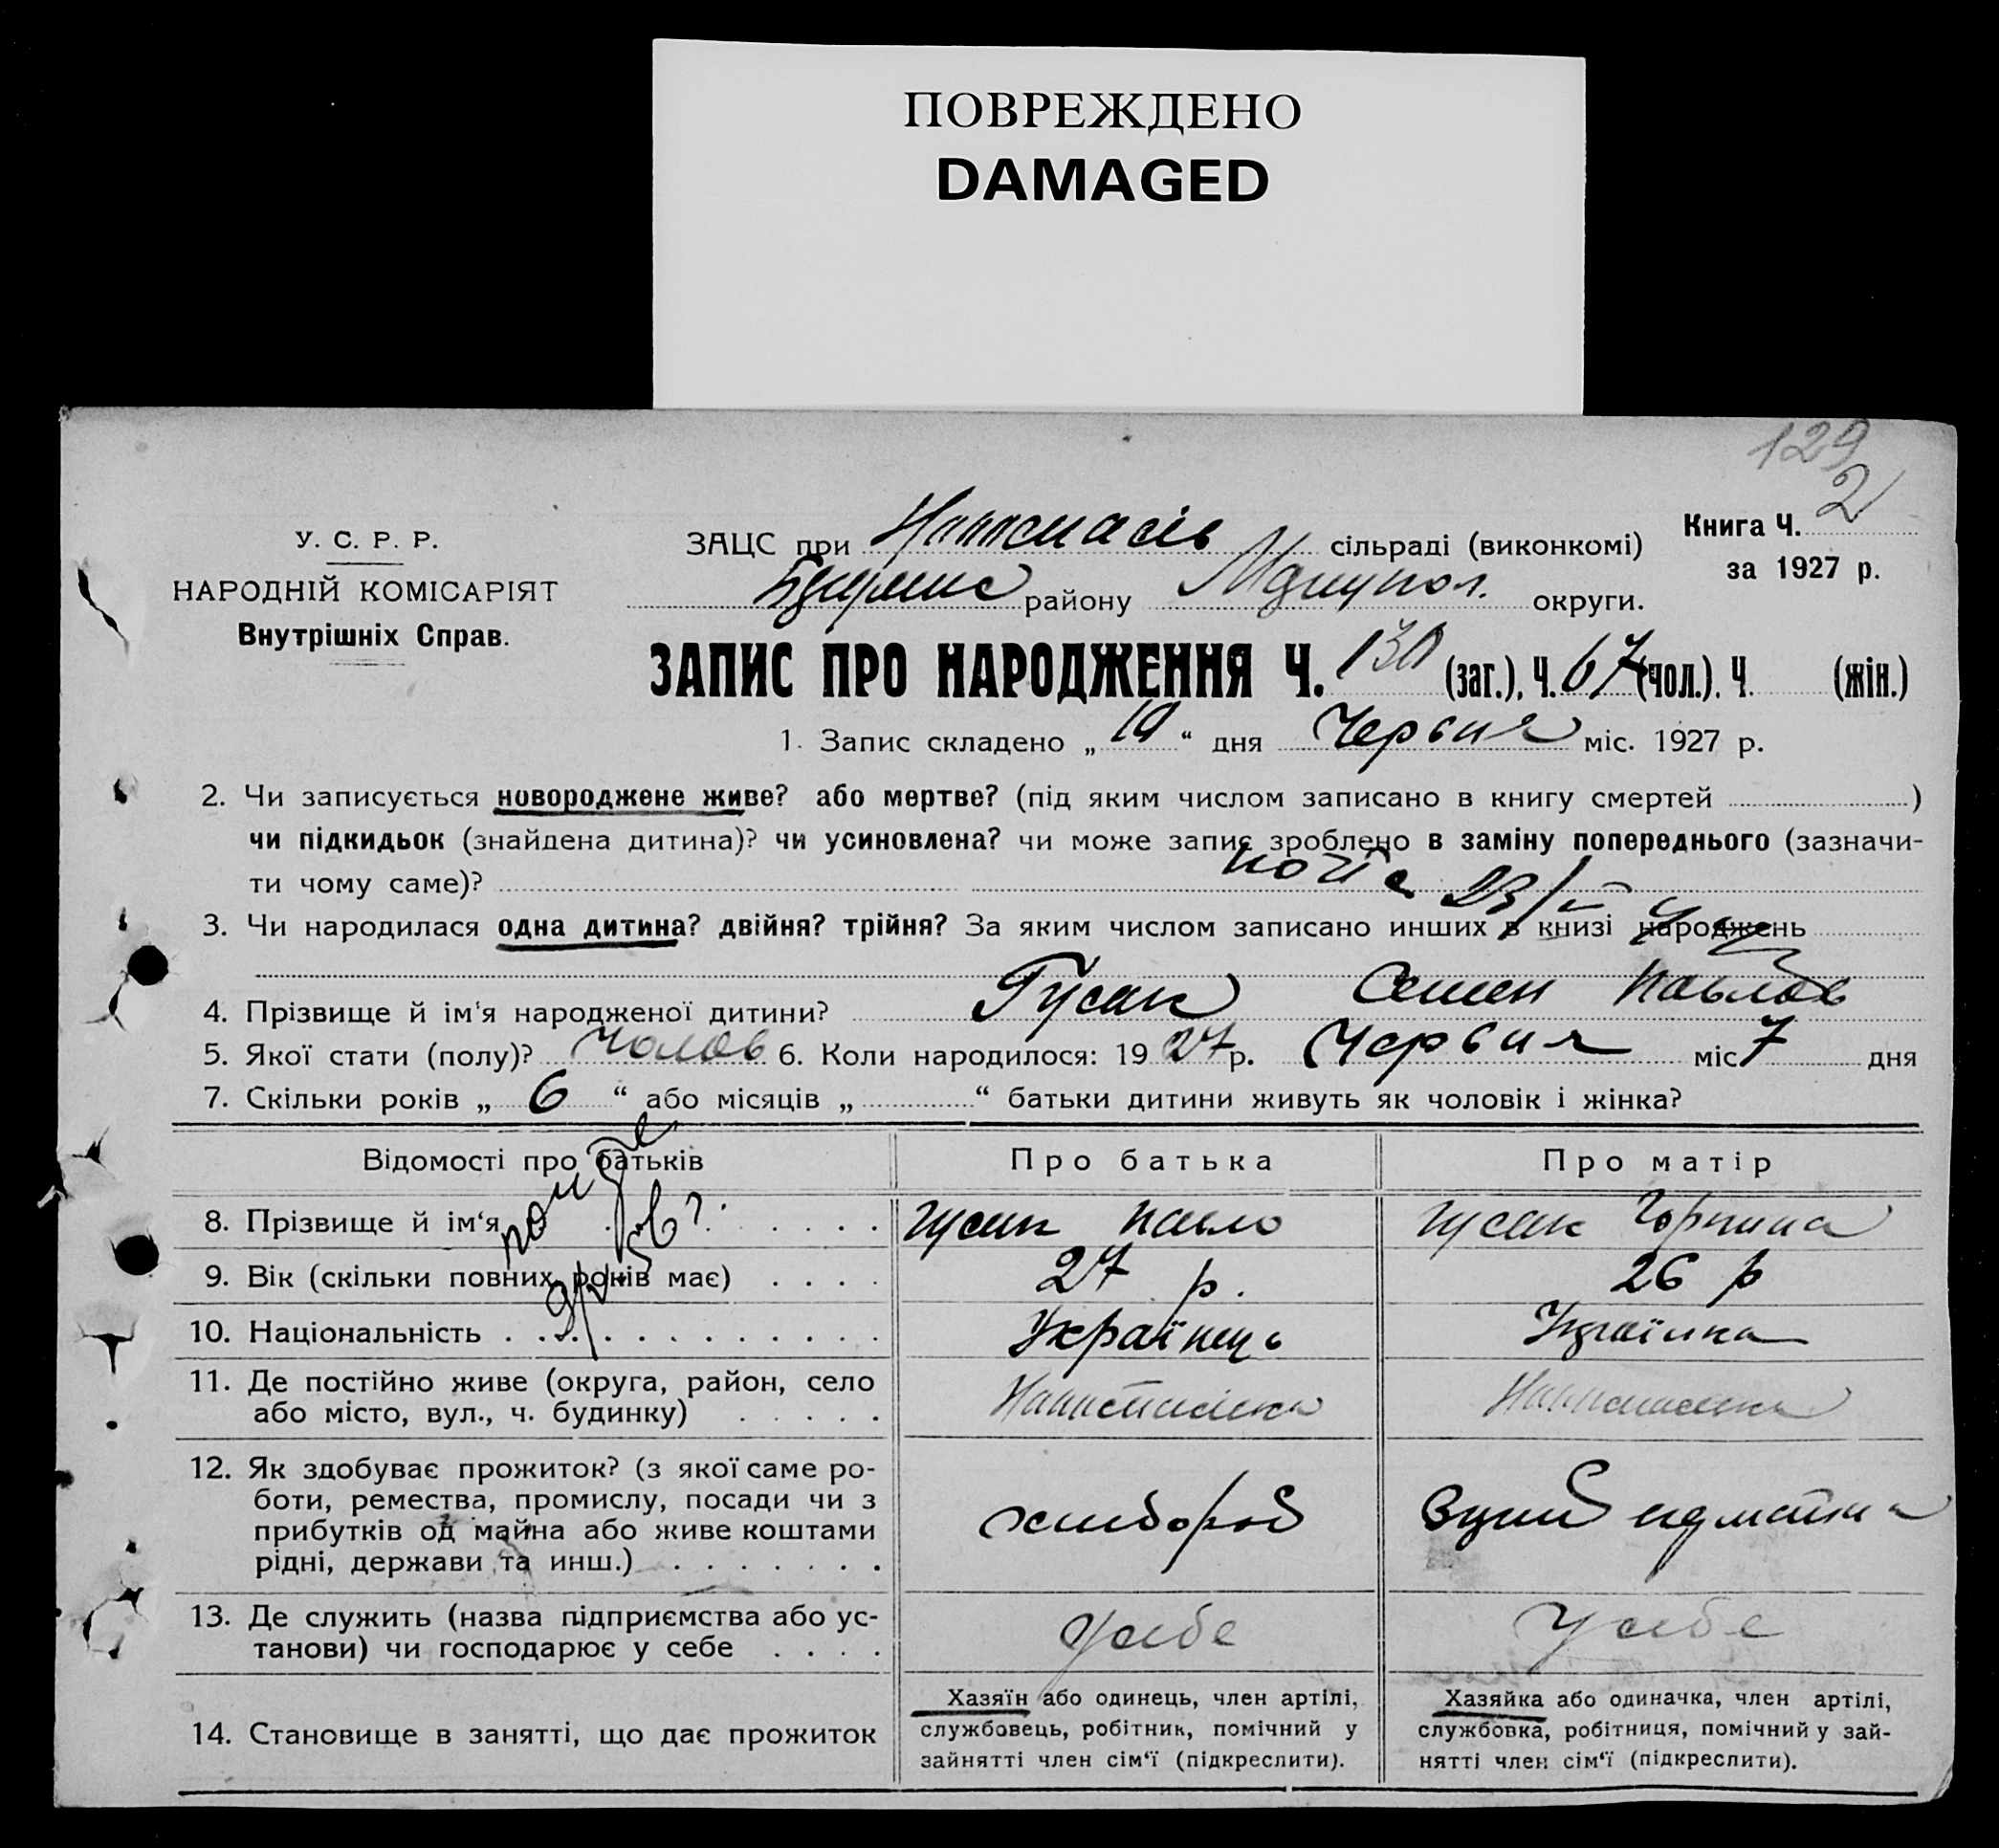 ПОВРЕЖДЕНО
DAMAGED
129
2
У. С. Р. Р.
НАРОДНІЙ КОМІСАРІЯТ
Внутрішніх Справ.
ЗАЦС при сільраді (виконкомі)
району Маріупол. округи.
Книга Ч.
за 1927 р.
ЗАПИС ПРО НАРОДЖЕННЯ Ч. 130 (заг.), Ч. 67 (чол.). Ч. (жін.)
1. Запис складено „ 10 “ дня Червня міс. 1927 р.
2. Чи записується новороджене живе? або мертве? (під яким числом записано в книгу смертей )
чи підкидьок (знайдена дитина)? чи усиновлена? чи може запис зроблено в заміну попереднього (зазначи-
ти чому саме)?
3. Чи народилася одна дитина? двійня? трійня? За яким числом записано инших в книзі народжень
4. Прізвище й ім'я народженої дитини? Гусак Семен Павлов
5. Якої стати (полу)? чолов 6. Коли народилося: 1927 р. Червня міс 7 дня
7. Скільки років „ 6 “ або місяців „ “ батьки дитини живуть як чоловік і жінка?
Відомості про батьків Про батька Про матір
8. Прізвище й ім'я Гусак Павло Гусак Горпина
9. Вік (скільки повних років має) 27 р. 26 р
10. Національність Українець Українка
11. Де постійно живе (округа, район, село
або місто, вул., ч. будинку)
12. Як здобуває прожиток? (з якої саме ро-
боти, ремества, промислу, посади чи з
прибутків од майна або живе коштами
рідні, держави та инш.) хлібороб
13. Де служить (назва підприємства або ус-
танови) чи господарює у себе У себе У себе
14. Становище в занятті, що дає прожиток
Хазяїн або одинець, член артілі,
службовець, робітник, помічний у
зайнятті член сім'ї (підкреслити).
Хазяйка або одиначка, член артілі,
службовка, робітниця, помічний у зай-
нятті член сім'ї (підкреслити).